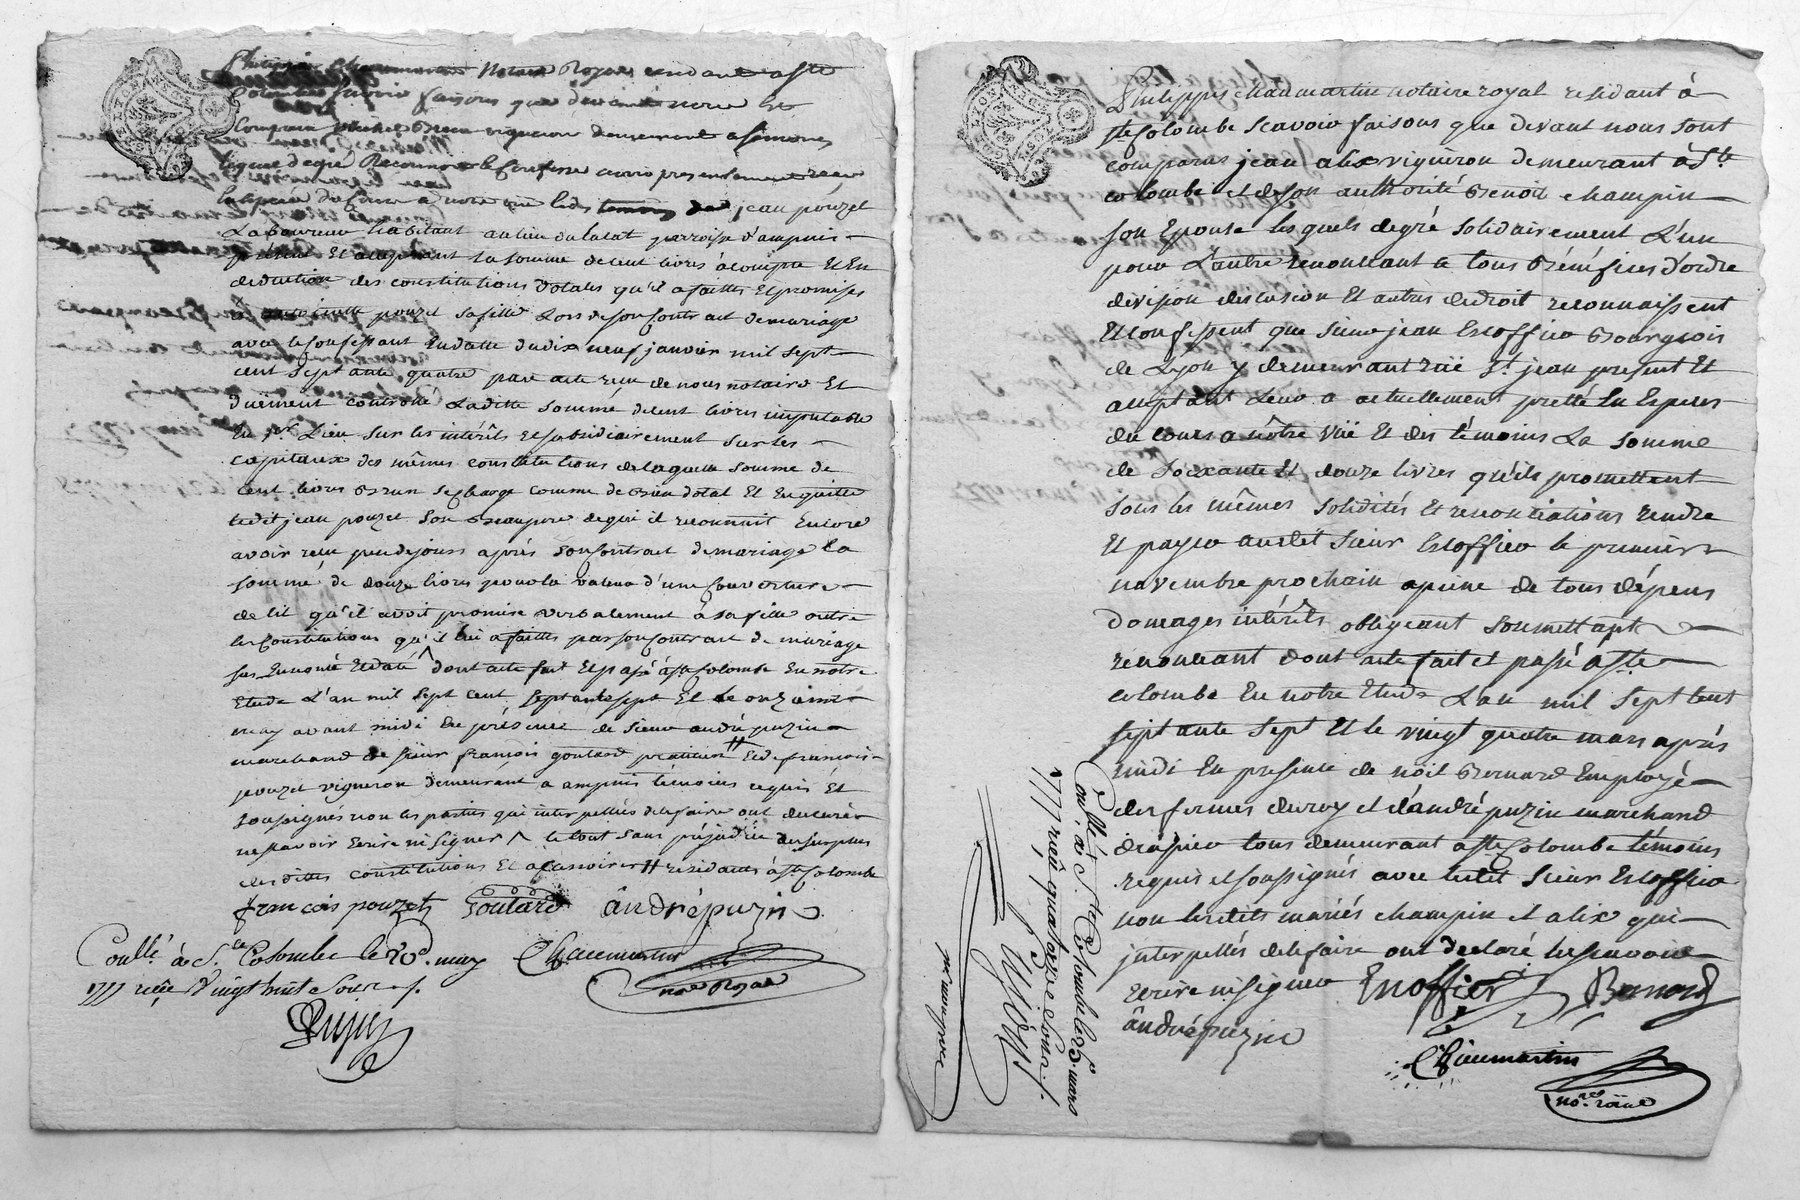 Philippe Chaumartin Notaire Royal residant a Ste
Colombe scavoir faisons que devant nous est
comparu Michel Brun vigneron demeurant a
lequel de gré Reconnoit et Confesse avoir presentement receu
en Espèces du Cours a notre vue et des temoins de jean pouzet
Laboureur habitant au lieu du parroisse d'ampuis
présent Et acceptant La somme de cent livres à compte Et En
deduction des constitutions dotales qu'il a faittes Et promises
à pouzet sa fille Lors de son Contract de mariage
avec le Confessant En datte du dix neuf janvier mil sept
cent septante quatre par acte receu de nous notaire Et
duëment controllé Laditte somme de cent livres imputable
En 1er Lieu sur les intérêts Et subsidiairement sur les
capitaux des mêmes constitutions de laquelle somme de
cent livres Brun se charge comme de Bien dotal Et En quitte
ledit jean pouzet son Beaupere de qui il reconnoit Encore
avoir receu peu de jours après son Contract de mariage la
somme de douze livres pour la valeur d'une Couverture
de lit qu'il avoit promise verbalement à sa fille outre
les Constitutions qu'il lui a faittes par son Contract de mariage
sus Enoncé Et daté ^ dont acte fait Et passé à Ste Colombe En notre
Etude L'an mil sept cent septante sept Et le onzieme
may avant midi En présence de Sieur andré puzin
marchand de Sieur françois goutard praticien # Et de françois
pouzet vigneron demeurant a ampuis temoins requis Et
soussignés non les parties qui interpellées de le faire ont declaré
ne scavoir Ecrire ni signer ^ le tout sans préjudice du surplus
desdittes constitutions Et accessoires # residants à Ste Colombe
françois pouzet Goutard andré puzin
Chaumartin
nore Royal
Conllé à Ste Colombe le 20. may
1777 receu Vingt huit Sous
Philippe Chaumartin notaire royal residant à
Ste Colombe Scavoir faisons que devant nous sont
comparus jean alix vigneron demeurant à Ste
colombe et de son authorité Benoit champin
son Epouse lesquels de gré solidairement L'un
pour L'autre renoncant a tous Bénéfices d'ordre
division discusion Et autres de droit reconnaissent
Et confessent que Sieur jean Escoffier Bourgeois
de Lyon y demeurant rüe St jean present Et
acceptant Leur a actuellement pretté En Especes
du cours a nôtre vüe Et des témoins La somme
de soixante Et douze livres qu'ils promettent
sous les mêmes solidités Et renonciations rendre
Et payer audit Sieur Escoffier le premier
novembre prochain a peine de tous dépens
domages intérêts obligeant soumettant
renoncant dont acte fait et passé à Ste
colombe En notre Etude L'an mil sept cent
septante sept Et le vingt quatre mars après
midi En presence de nöil Bernard Employé
des fermes du roy et d'andré puzin marchand
drapier tous demeurant à Ste Colombe témoins
requis et soussignés avec ledit Sieur Escoffier
non lesdits mariés champin et alix qui
interpellés de le faire ont declaré ne scavoir
Ecrire ni signer Escoffier Bernard
andré puzin
Chaumartin
nore roial
Conllé à Ste Colombe le 25. mars
1777 receu quatorze Sous